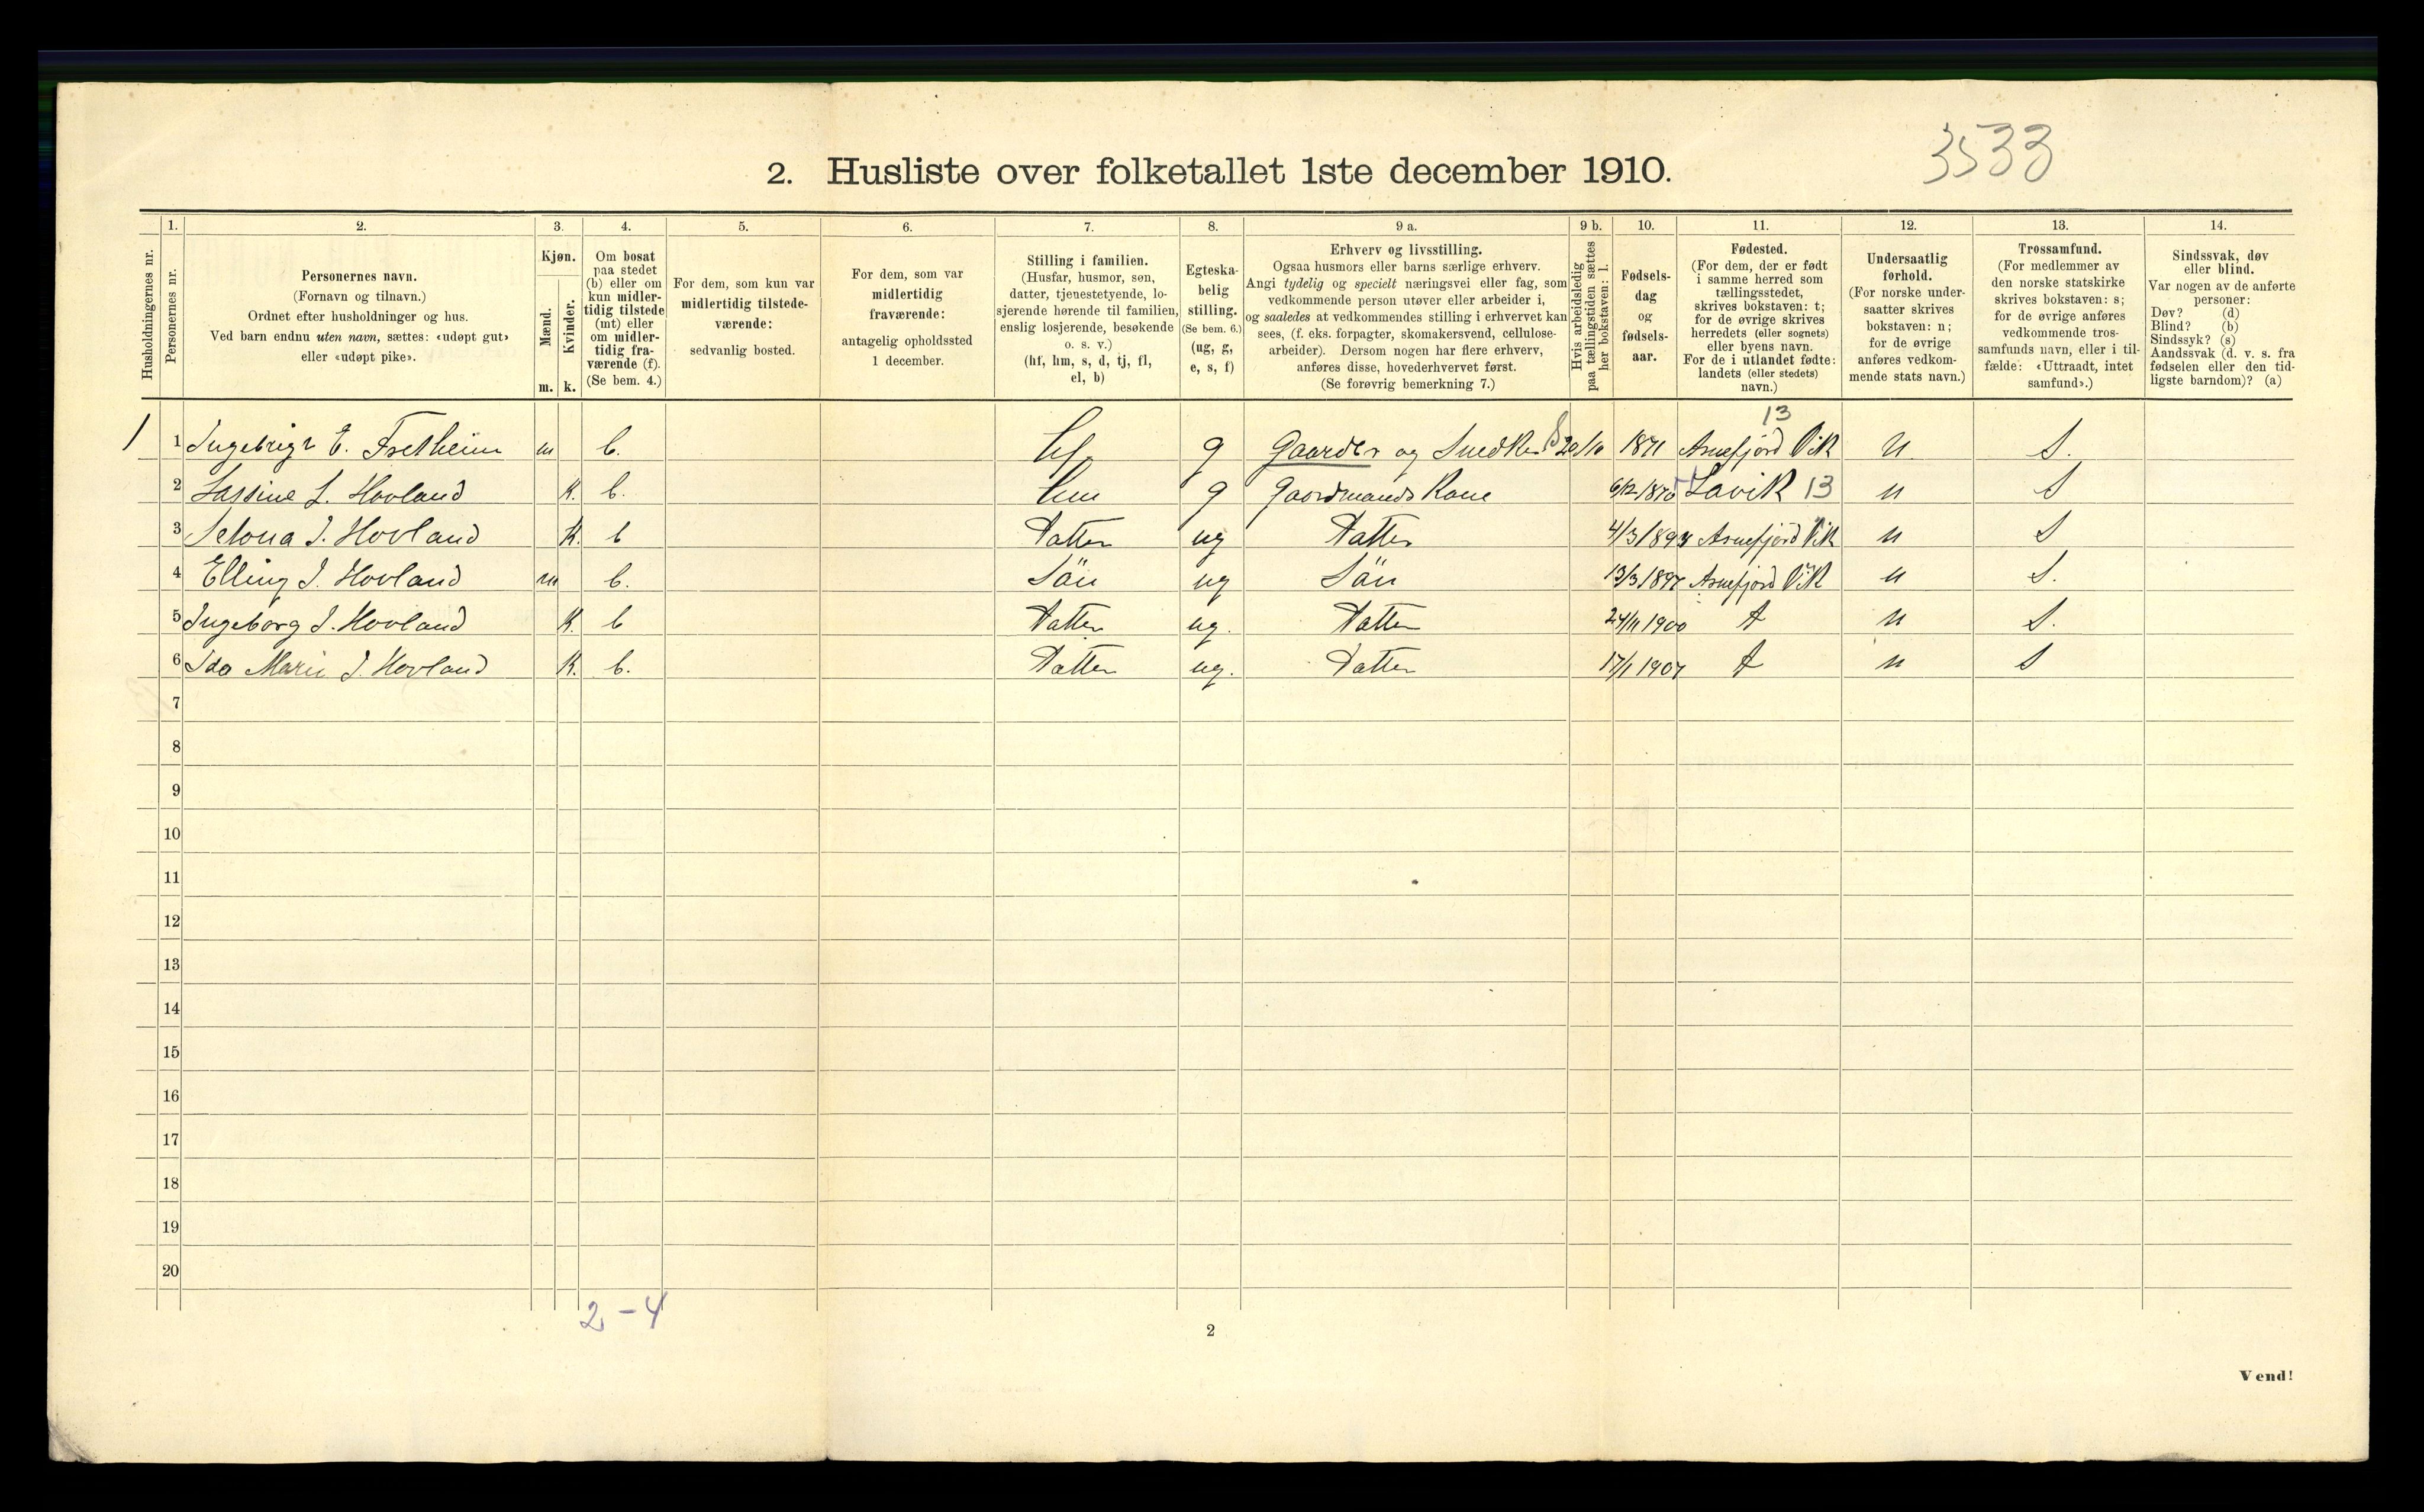 3533
2. Husliste over folketallet 1ste december 1910.
Husholdningernes nr.
1.
Personernes nr.
2.
Personernes navn.
(Fornavn og tilnavn.)
Ordnet efter husholdninger og hus.
Ved barn endnu uten navn, sættes: «udøpt gut»
eller «udøpt pike».
3.
Kjøn.
Mænd.
Kvinder.
m. k.
4.
Om bosat
paa stedet
(b) eller om
kun midler-
tidig tilstede
(mt) eller
om midler-
tidig fra-
værende (f).
(Se bem. 4.)
5.
For dem, som kun var
midlertidig tilstede-
værende:
sedvanlig bosted.
6.
For dem, som var
midlertidig
fraværende:
antagelig opholdssted
1 december.
7.
Stilling i familien.
(Husfar, husmor, søn,
datter, tjenestetyende, lo-
sjerende hørende til familien,
enslig losjerende, besøkende
o. s. v.)
(hf, hm, s, d, tj, fl,
el, b)
8.
Egteska-
belig
stilling.
(Se bem. 6.)
(ug, g,
e, s, f)
9 a.
Erhverv og livsstilling.
Ogsaa husmors eller barns særlige erhverv.
Angi tydelig og specielt næringsvei eller fag, som
vedkommende person utøver eller arbeider i,
og saaledes at vedkommendes stilling i erhvervet kan
sees, (f. eks. forpagter, skomakersvend, cellulose-
arbeider). Dersom nogen har flere erhverv,
anføres disse, hovederhvervet først.
(Se forøvrig bemerkning 7.)
9 b.
Hvis arbeidsledig
paa tællingstiden sættes
her bokstaven: l.
10.
Fødsels-
dag
og
fødsels-
aar.
11.
Fødested.
(For dem, der er født
i samme herred som
tællingsstedet,
skrives bokstaven: t;
for de øvrige skrives
herredets (eller sognets)
eller byens navn.
For de i utlandet fødte:
landets (eller stedets)
navn.)
12.
Undersaatlig
forhold.
(For norske under-
saatter skrives
bokstaven: n;
for de øvrige
anføres vedkom-
mende stats navn.)
13.
Trossamfund.
(For medlemmer av
den norske statskirke
skrives bokstaven: s;
for de øvrige anføres
vedkommende tros-
samfunds navn, eller i til-
fælde: «Uttraadt, intet
samfund».)
14.
Sindssvak, døv
eller blind.
Var nogen av de anførte
personer:
Døv? (d)
Blind? (b)
Sindssyk? (s)
Aandssvak (d. v. s. fra
fødselen eller den tid-
ligste barndom)? (a)
13
1 1 Ingebrigt E. Fretheim m b. hf. g Gaardbr og Snedker 20/10 1871 Arnefjord Vik n S.
2 Lassine L. Hovland K. b. hm g Gaardmands Kone 6/12 1870 Lavik 13 n S
3 Selona I. Hovland K. b Datter ug Datter 4/3 189 Arnefjord Vik n S
4 Elling I. Hovland m b. Sön ug Sön 13/3 1897 Arnefjord Vik n S.
5 Ingeborg I. Hovland K. b Datter ug. Datter 24/11 1900 t n S.
6 Ida Marie I. Hovland K. b. Datter ug. Datter 17/1 1907 t n S
7
8
9
10
11
12
13
14
15
16
17
18
19
20
2 - 4
2
Vend!